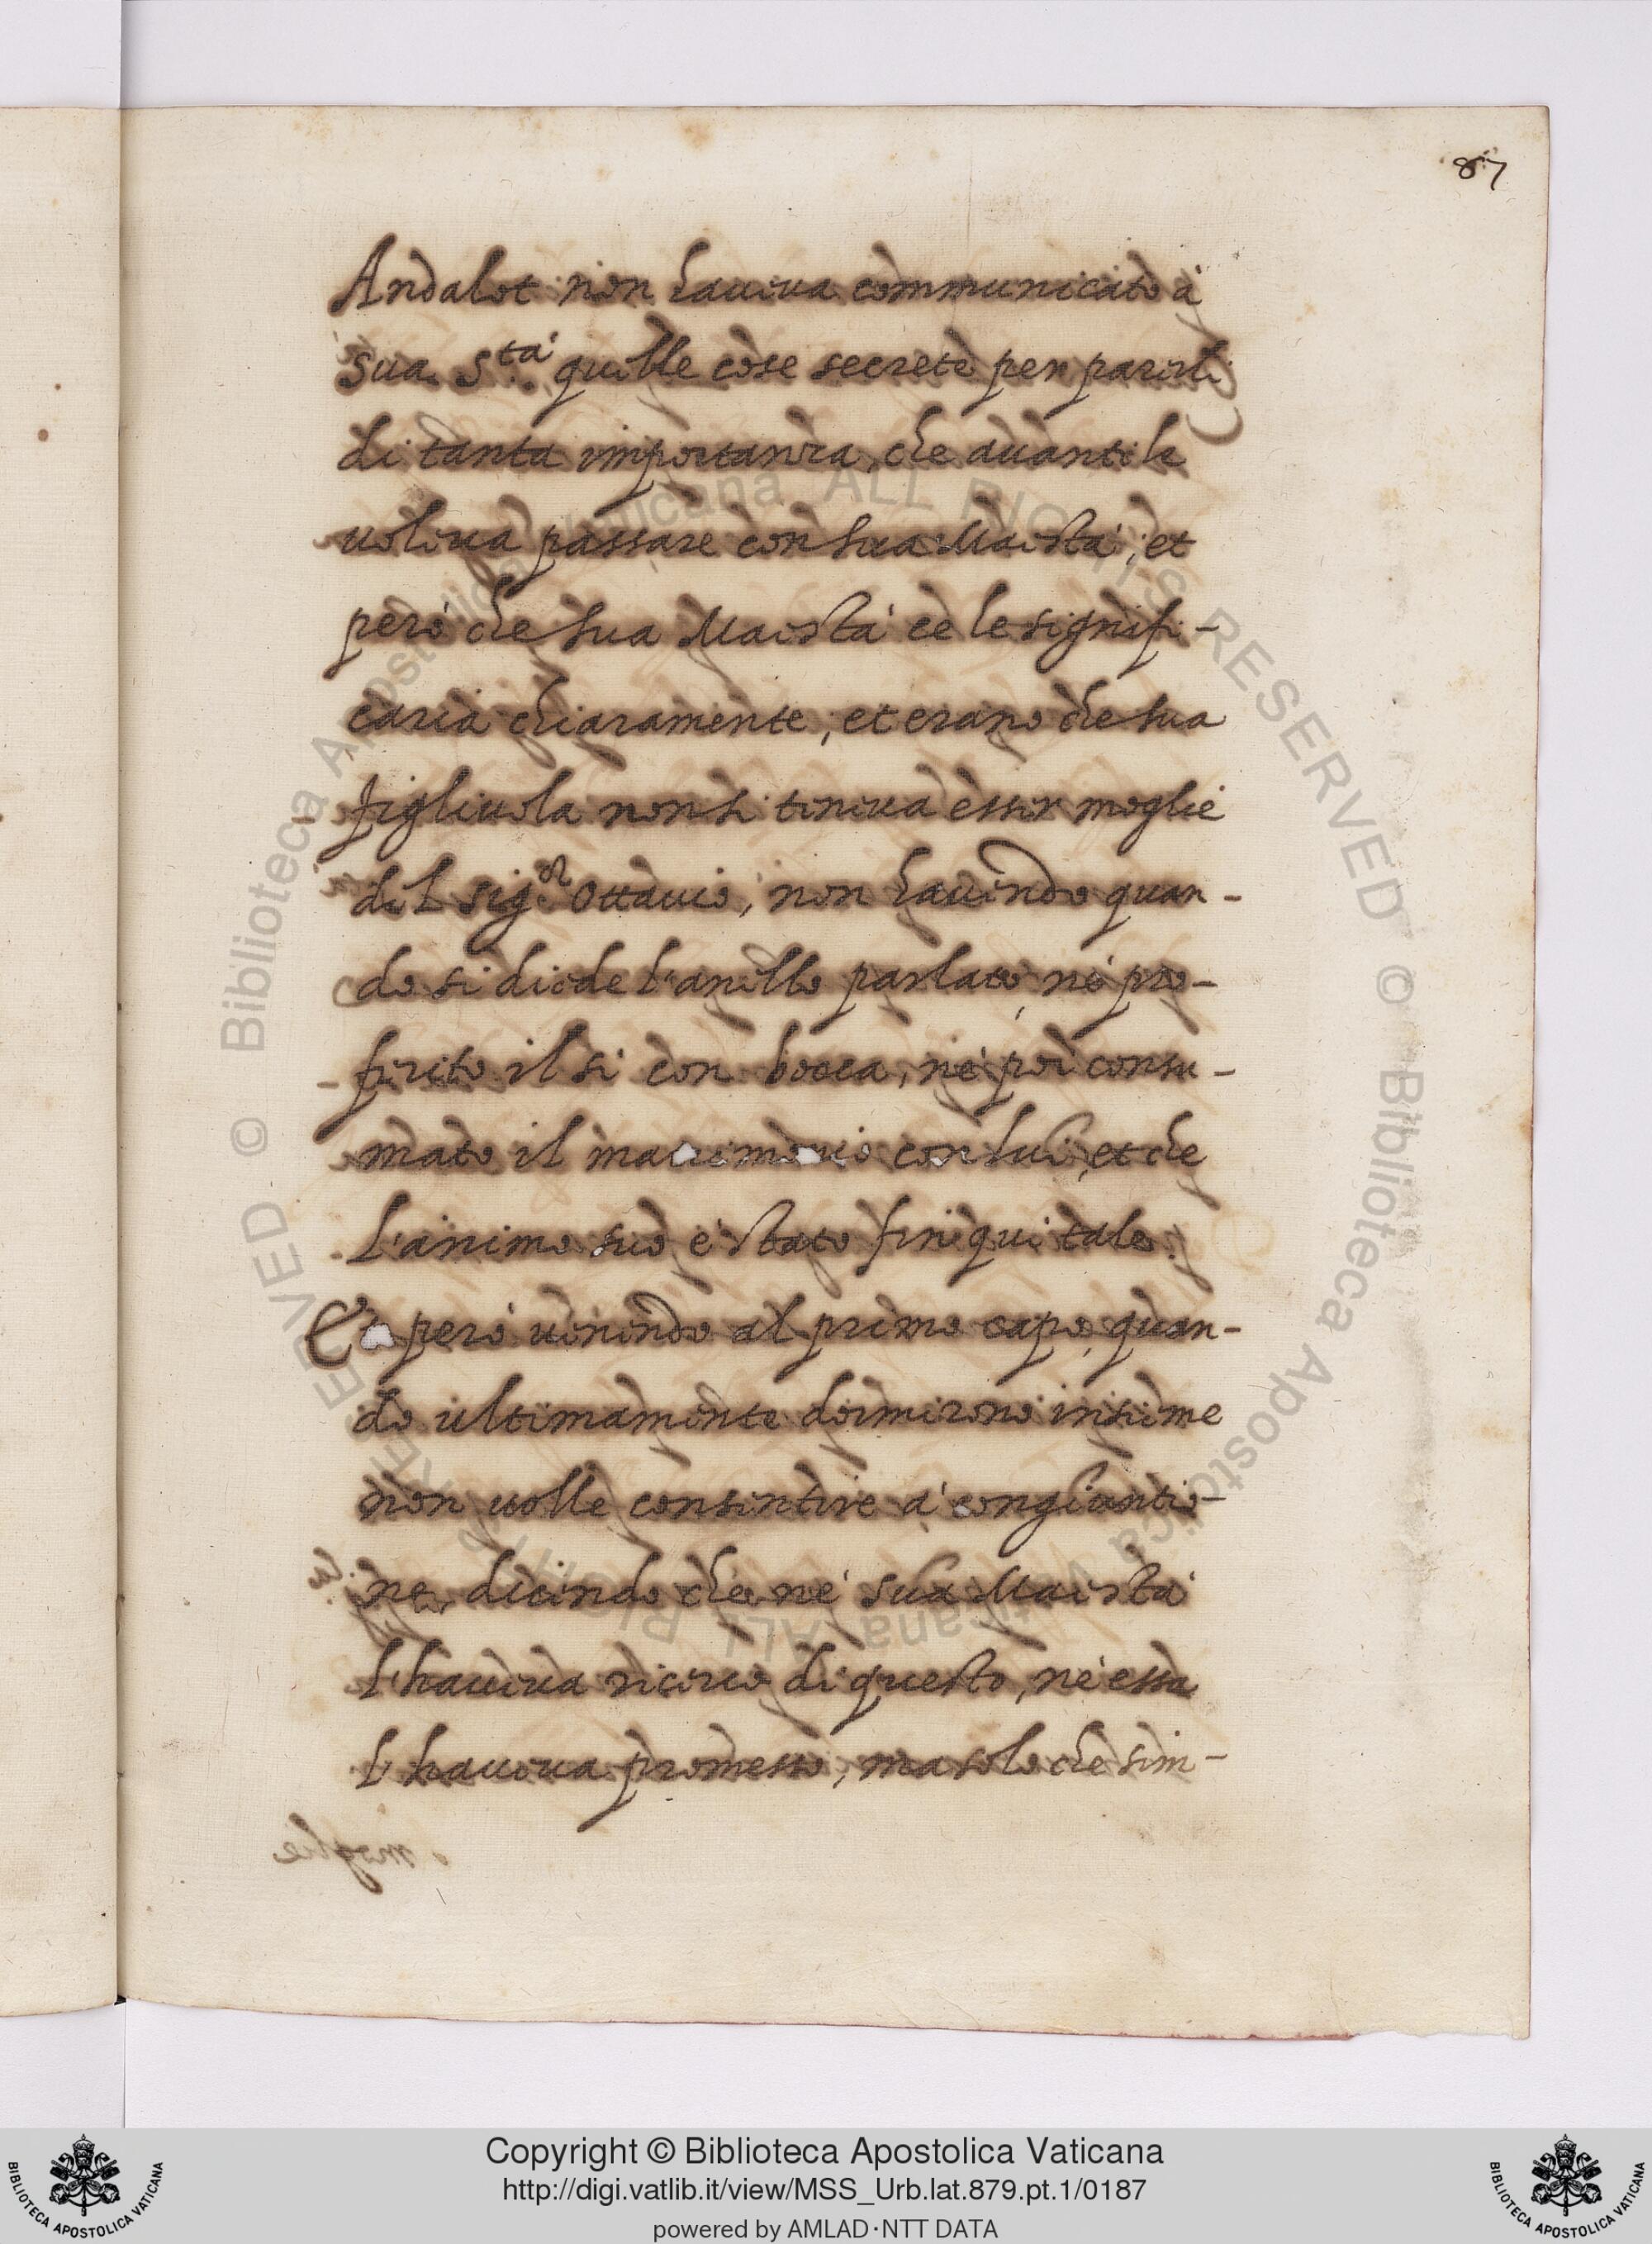 87
Andalot non haueua communicato à
sua S.tà quelle cose secrete per parerli
di tanta importanza, che auanti le
uoleua passare con sua Maestà; et
però che sua Maestà ce le signifi-
caria chiaramente, et erano che sua
figliuola non si teneua esser moglie
del sig.or Ottauio, non hauendo quan-
do si diede l'anello parlato, nè pro-
ferito il si con bocca, nè poi consu-
mato il matrimonio con lui, et che
l'animo suo è stato fin qui tale.
Et però uenendo al primo capo, quan-
do ultimamente dormirono insieme
non uolle consentire à congiuntio-
ne, dicendo che nè sua Maestà
l'haueua ricerco di questo, nè essa
l'haueua promesso, ma solo che sim-
Copyright © Biblioteca Apostolica Vaticana
http://digi.vatlib.it/view/MSS_Urb.lat.879.pt.1/0187
powered by AMLAD·NTT DATA